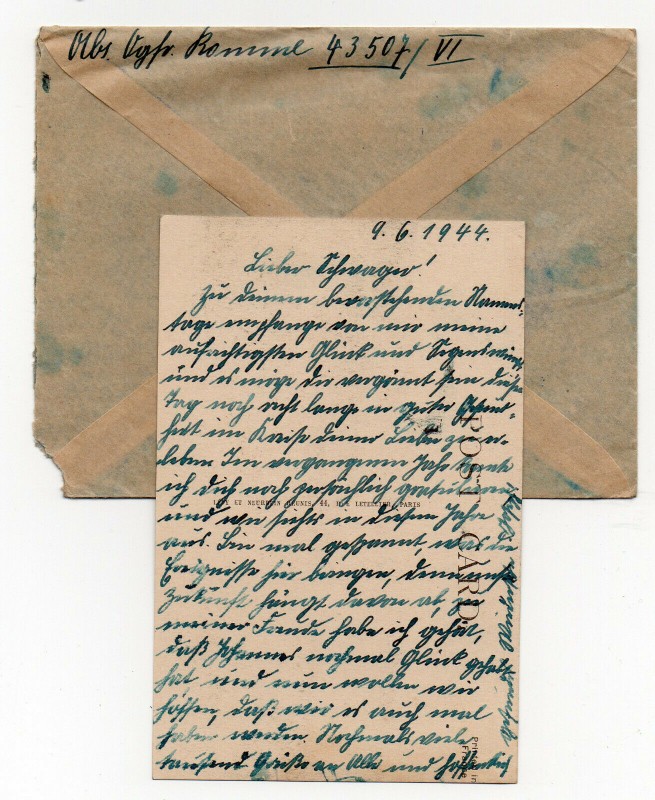 Abs. Ogfr. Rommel 43507/VI
9.6.1944.
Lieber Schwager!
Zu deinem bevorstehenden Namens-
tage empfange von mir meine
aufrichtigsten Glück und Segenswünsche
und es möge dir vergönnt sein diesen
Tag noch recht lange in guter Gesund-
heit im Kreise deiner Lieben zu er-
leben. Im vergangenen Jahr konnte
ich dich noch persönlich gratulieren
und wie siehts in diesem Jahre
aus. Bin mal gespannt, was die
Ereignisse hier bringen, denn unsere
Zukunft hängt davon ab, zu
meiner Freude habe ich gehört,
daß Johannes nochmal Glück gehabt
hat und nun wollen wir
hoffen, daß wir es auch mal
haben werden. Nochmals viele
tausend Grüße an Alle und hoffentlich
NEURDEIN RÉUNIS, 44, RUE LETELLIER, PARIS
POST CARD
Printed in
France